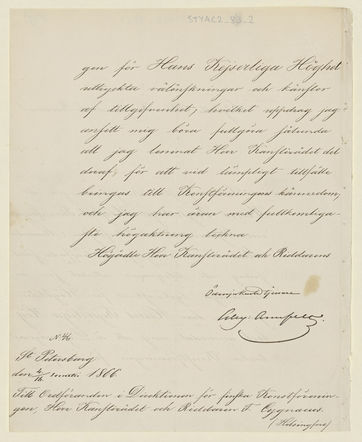 STYAC2_93_2
gen för Hans Kejserliga Höghet
uttryckta välönskningar och känslor
af tillgifvenhet, hvilket uppdrag jag
ansett mig böra fullgöra sålunda
att jag lemnat Herr Kanslirådet del
deraf, för att vid lämpligt tillfälle
bringas till Konstföreningens kännedom,
och jag har äran med fullkomliga-
ste högaktning teckna
Högädle Herr Kanslirådets och Riddarens
Ödmjukaste tjenare
Alex. Armfelt
St Petersburg
den 1866.
Till Ordföranden i Direktionen för finska Konstförenin-
gen, Herr Kanslirådet och Riddaren F. Cygnaeus.
(Helsingfors)